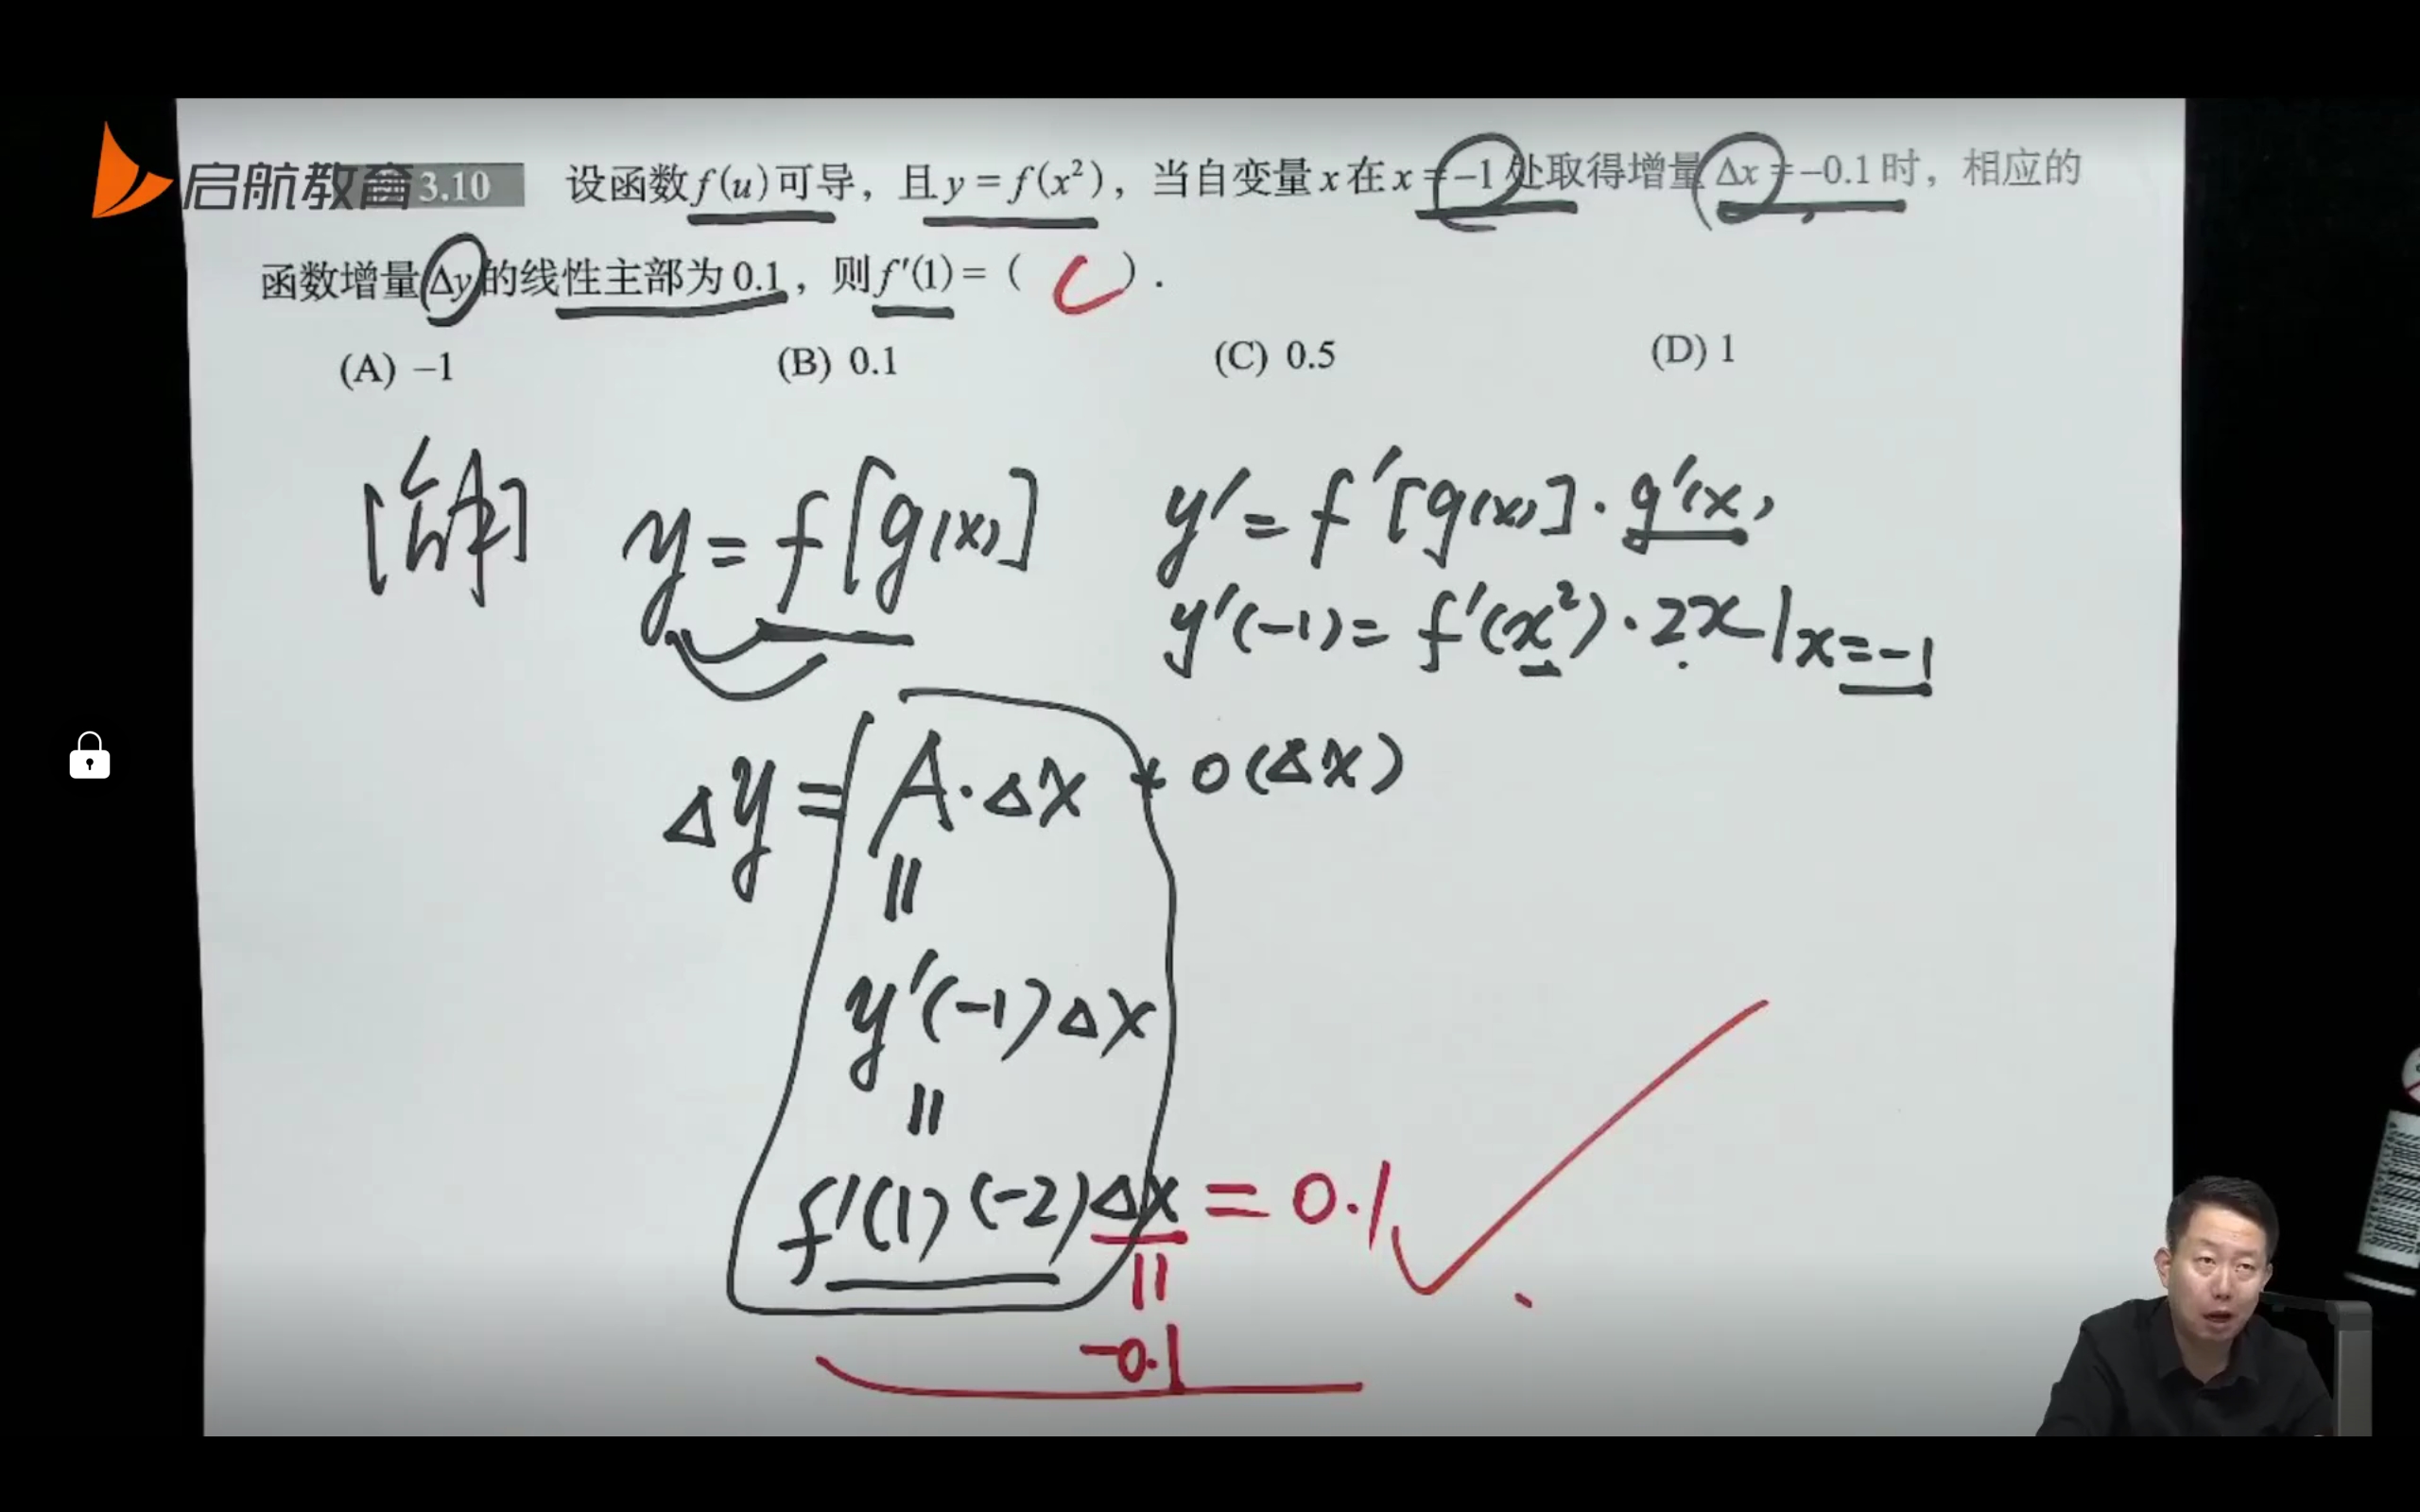 启航教育 3.10 设函数 f(u) 可导，且 y = f(x²)，当自变量 x 在 x = -1 处取得增量 Δx = -0.1 时，相应的
函数增量 Δy 的线性主部为 0.1，则 f′(1) = ( C ).
(A) -1 (B) 0.1 (C) 0.5 (D) 1
[解] y = f[g(x)] y′ = f′[g(x)]·g′(x)
y′(-1) = f′(x²)·2x|x=-1
Δy = A·Δx + o(Δx)
=
y′(-1)Δx
=
f′(1)(-2)Δx = 0.1
=
-0.1